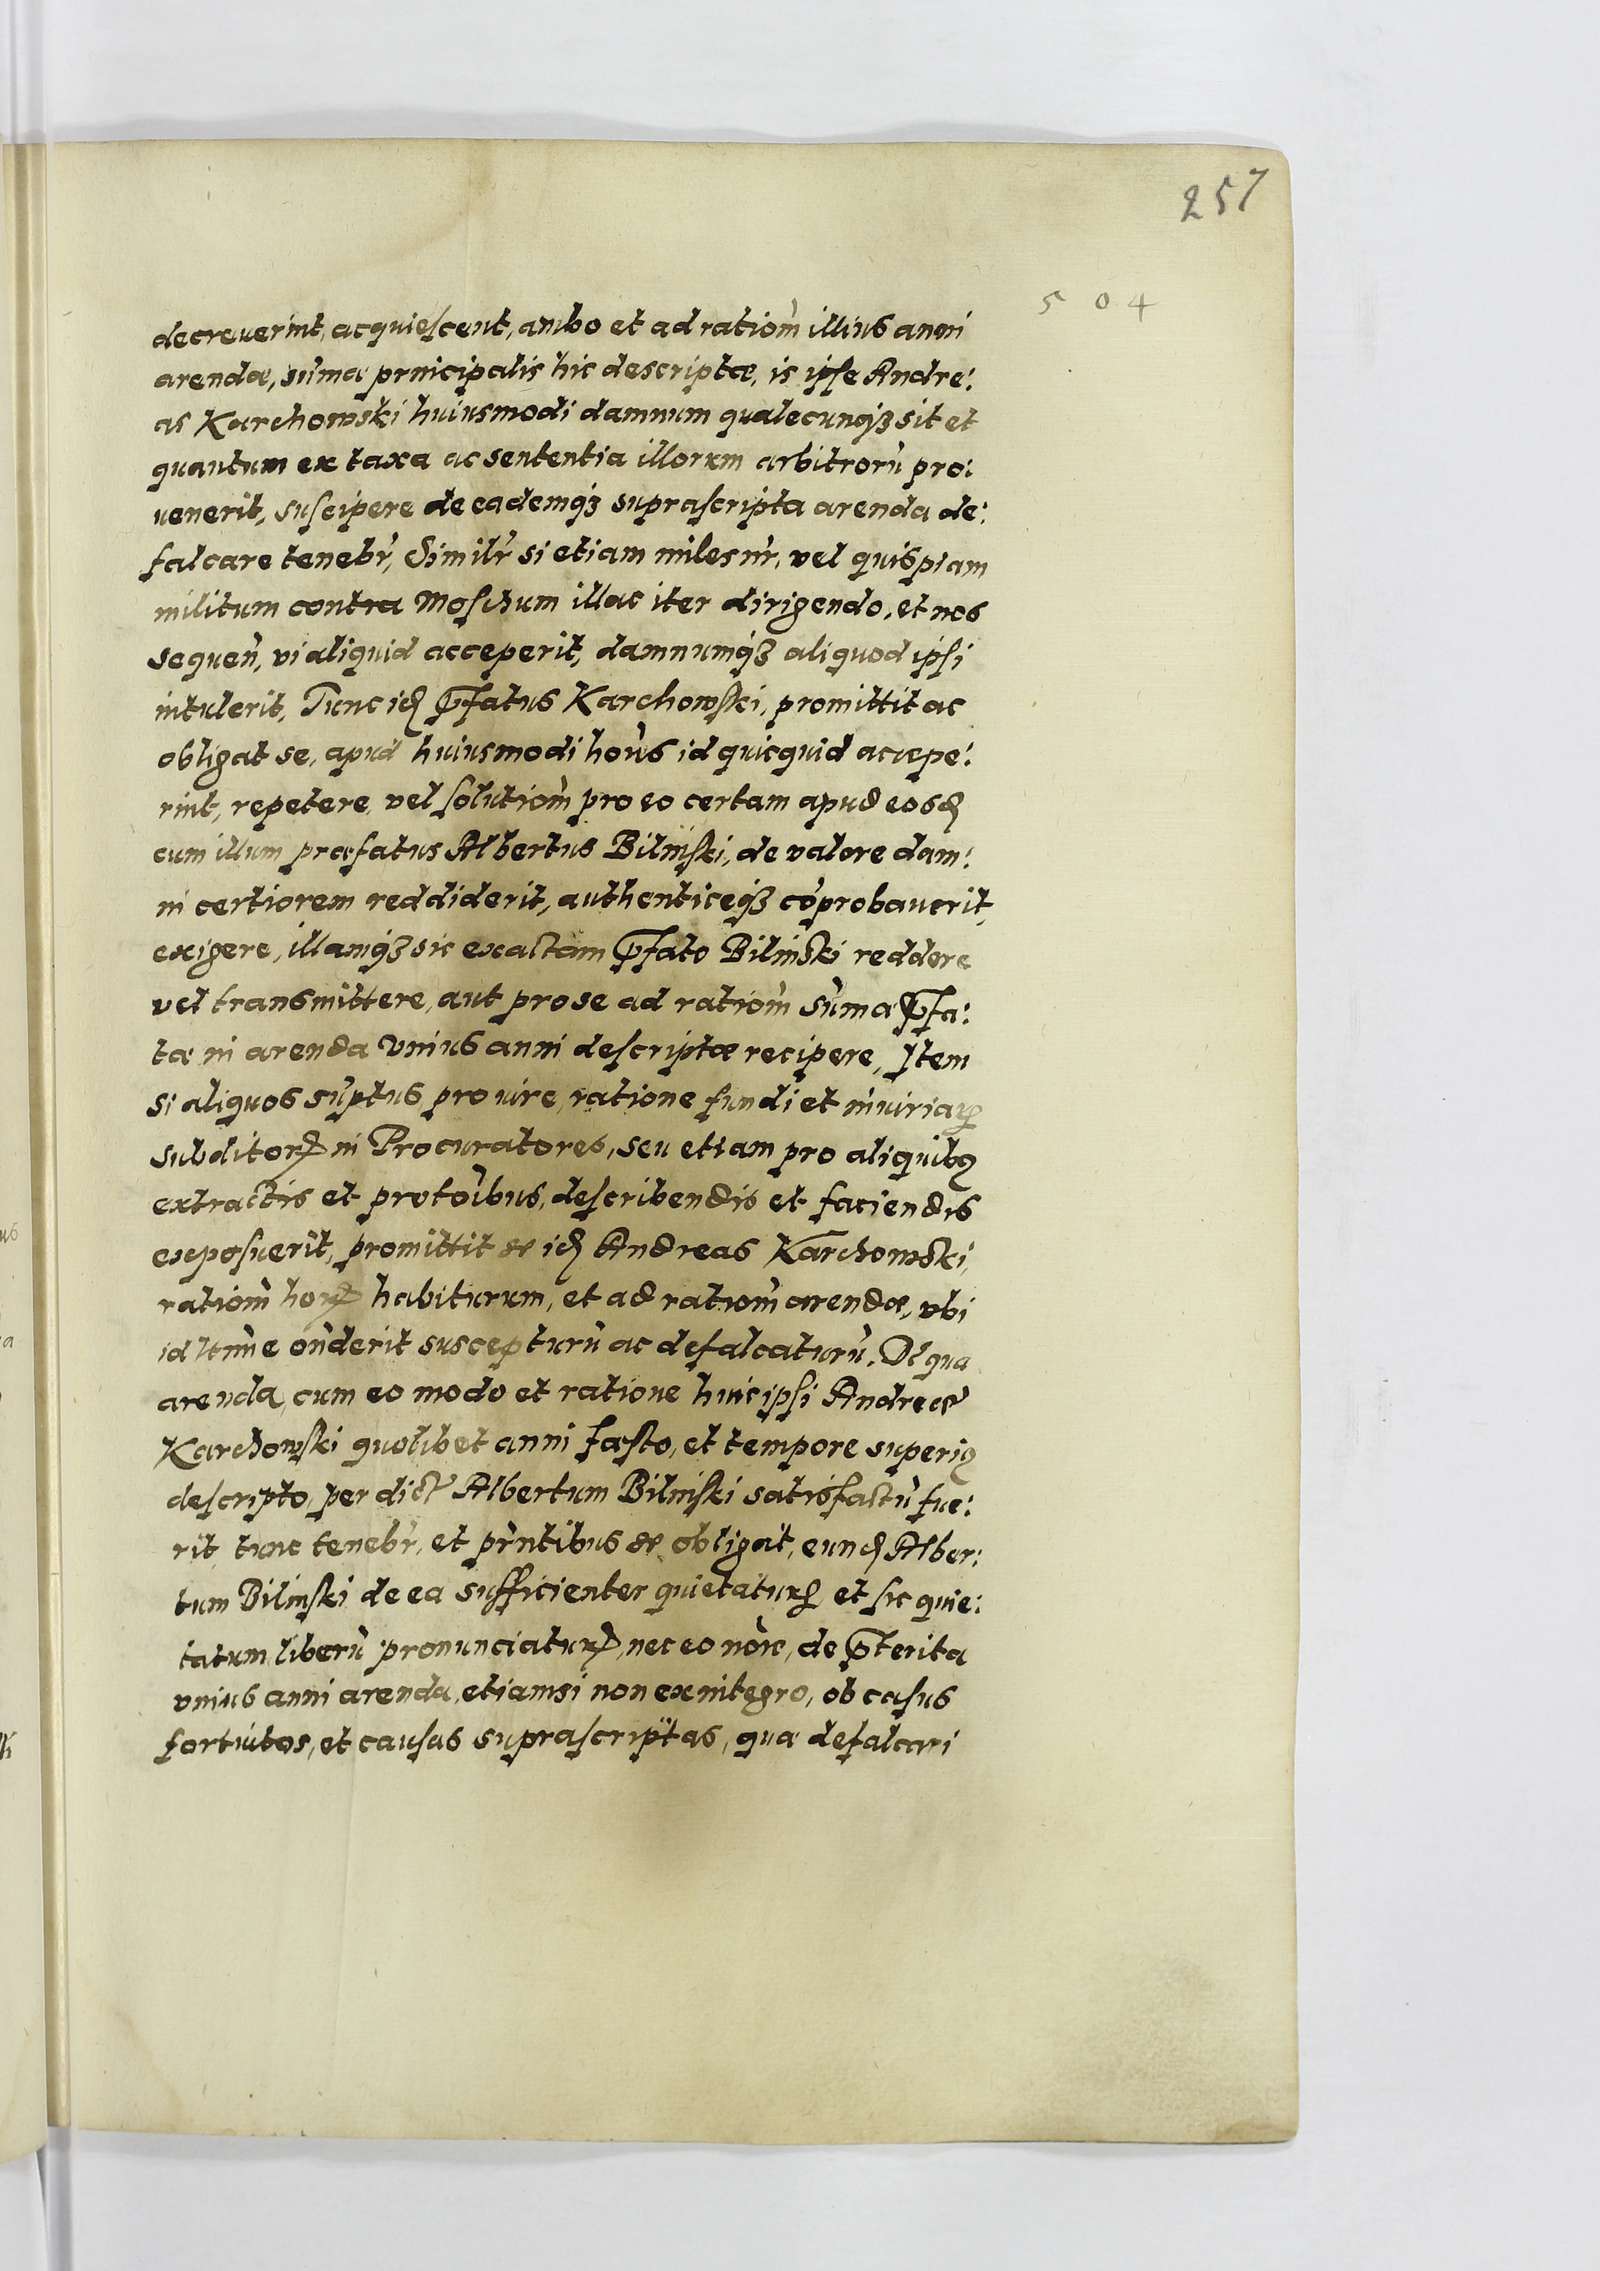 257
504
decreuerint, acquiescent, ambo et ad ratiom̀ illius anni
arendæ, sum̀æ principalis hic descriptæ, is ipse Andre:
as Karchowski huiusmodi damnum qualecunq₃ sit et
quantum ex taxa ac sententia illorum arbitrorù pro:
uenerit, suscipere de eademq₃ suprascripta arenda de:
falcare tenebr̀, Similr̀ si etiam miles nr̀, vel quispiam
militum contra Moschum illac iter dirigendo, et nos
sequeǹ, vi aliquid acceperit, damnumq₃ aliquod ipsi
intulerit, Tunc idē p̄fatus Karchowski, promittit ac
obligat se, apud huiusmodi hoīs id quicquid accepe:
rint, repetere, vel solutiom̀ pro eo certam apud eosdē
cum illum præfatus Albertus Bilinski, de valore dam:
ni certiorem reddiderit, authenticeq₃ cōprobauerit,
exigere, illamq₃ sic exactam p̄fato Bilinski reddere
vel transmittere, aut pro se ad ratiom̀ sum̀æ p̄fa:
tæ in arenda vnius anni descriptæ recipere, Item
si aliquos sup̀tus pro iure, ratione fundi et iniuriaꝝ
subditoꝝ in Procuratores, seu etiam pro aliquibꝯ
extractis et protoìbus, describendis et faciendis
exposuerit, promittit se idē Andreas Karchowski,
ratiom̀ hoꝝ habiturum, et ad ratiom̀ arendæ, vbi
id ltim̀e oǹderit suscepturù ac defalcaturù. De qua
arenda, cum eo modo et ratione huic ipsi Andreæ
Karchowski quolibet anni festo, et tempore superiꝯ
descripto, per dict̄ Albertum Bilinski satisfactù fue:
rit, tunc tenebr̀, et pr̀ntibus se obligat, eundē Alber:
tum Bilinski de ea sufficienter quietatuꝝ et sic quie:
tatum, liberù pronunciatuꝝ, nec eo noìe, de p̄terita
vnius anni arenda, etiamsi non ex integro, ob casus
fortuitos, et causas suprascriptas, quæ defalcari